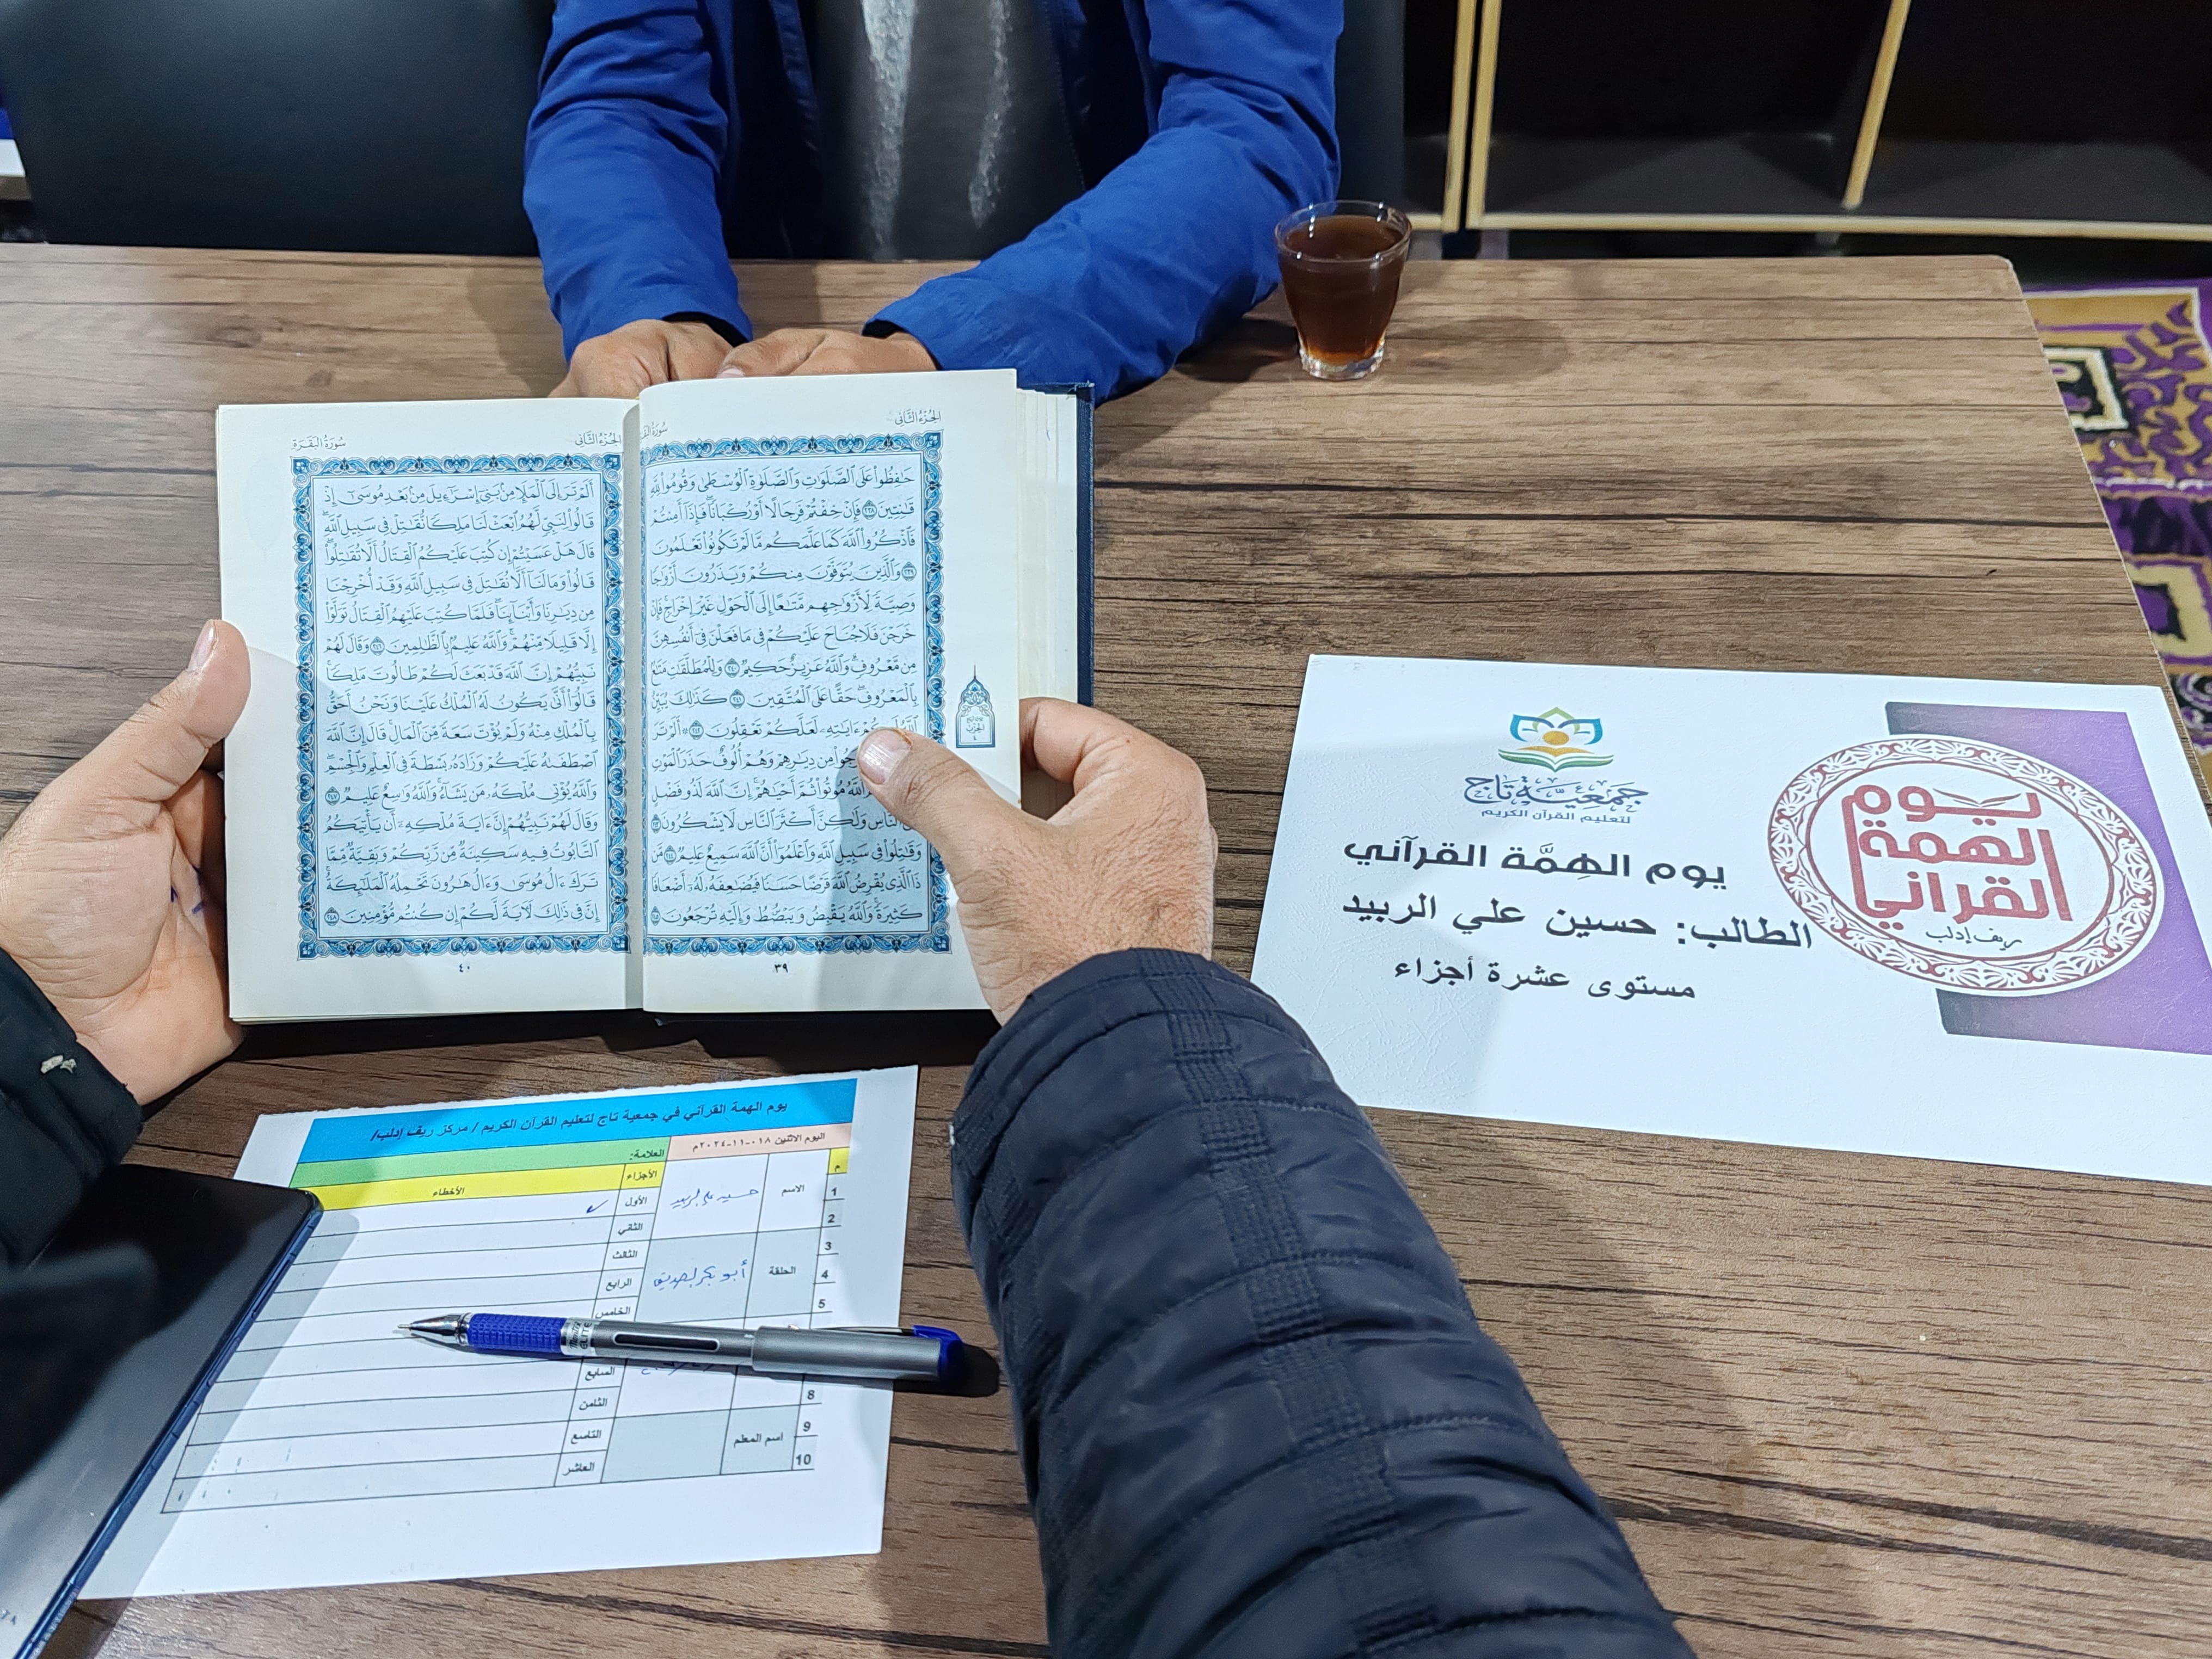 الجُزْءُ الثَّانِي
سُورَةُ
حَٰفِظُوا۟ عَلَى ٱلصَّلَوَٰتِ وَٱلصَّلَوٰةِ ٱلْوُسْطَىٰ وَقُومُوا۟ لِلَّهِ
قَٰنِتِينَ ٢٣٨ فَإِنْ خِفْتُمْ فَرِجَالًا أَوْ رُكْبَانًا فَإِذَآ أَمِنتُمْ
فَٱذْكُرُوا۟ ٱللَّهَ كَمَا عَلَّمَكُم مَّا لَمْ تَكُونُوا۟ تَعْلَمُونَ
٢٣٩ وَٱلَّذِينَ يُتَوَفَّوْنَ مِنكُمْ وَيَذَرُونَ أَزْوَٰجًا
وَصِيَّةً لِّأَزْوَٰجِهِم مَّتَٰعًا إِلَى ٱلْحَوْلِ غَيْرَ إِخْرَاجٍ فَإِنْ
خَرَجْنَ فَلَا جُنَاحَ عَلَيْكُمْ فِى مَا فَعَلْنَ فِىٓ أَنفُسِهِنَّ
مِن مَّعْرُوفٍ وَٱللَّهُ عَزِيزٌ حَكِيمٌ ٢٤٠ وَلِلْمُطَلَّقَٰتِ مَتَٰعٌۢ
بِٱلْمَعْرُوفِ حَقًّا عَلَى ٱلْمُتَّقِينَ ٢٤١ كَذَٰلِكَ يُبَيِّنُ
ٱللَّهُ لَكُمْ ءَايَٰتِهِۦ لَعَلَّكُمْ تَعْقِلُونَ ٢٤٢ ۞ أَلَمْ تَرَ
مِن دِيَٰرِهِمْ وَهُمْ أُلُوفٌ حَذَرَ ٱلْمَوْتِ
ٱللَّهُ مُوتُوا۟ ثُمَّ أَحْيَٰهُمْ إِنَّ ٱللَّهَ لَذُو فَضْلٍ
ٱلنَّاسِ وَلَٰكِنَّ أَكْثَرَ ٱلنَّاسِ لَا يَشْكُرُونَ ٢٤٣
وَقَٰتِلُوا۟ فِى سَبِيلِ ٱللَّهِ وَٱعْلَمُوٓا۟ أَنَّ ٱللَّهَ سَمِيعٌ عَلِيمٌ ٢٤٤ مَّن
ذَا ٱلَّذِى يُقْرِضُ ٱللَّهَ قَرْضًا حَسَنًا فَيُضَٰعِفَهُۥ لَهُۥٓ أَضْعَافًا
كَثِيرَةً وَٱللَّهُ يَقْبِضُ وَيَبْصُۜطُ وَإِلَيْهِ تُرْجَعُونَ ٢٤٥
٣٩
الجُزْءُ الثَّانِي
سُورَةُ البَقَرَةِ
أَلَمْ تَرَ إِلَى ٱلْمَلَإِ مِنۢ بَنِىٓ إِسْرَٰٓءِيلَ مِنۢ بَعْدِ مُوسَىٰٓ إِذْ
قَالُوا۟ لِنَبِىٍّ لَّهُمُ ٱبْعَثْ لَنَا مَلِكًا نُّقَٰتِلْ فِى سَبِيلِ ٱللَّهِ
قَالَ هَلْ عَسَيْتُمْ إِن كُتِبَ عَلَيْكُمُ ٱلْقِتَالُ أَلَّا تُقَٰتِلُوا۟
قَالُوا۟ وَمَا لَنَآ أَلَّا نُقَٰتِلَ فِى سَبِيلِ ٱللَّهِ وَقَدْ أُخْرِجْنَا
مِن دِيَٰرِنَا وَأَبْنَآئِنَا فَلَمَّا كُتِبَ عَلَيْهِمُ ٱلْقِتَالُ تَوَلَّوْا۟
إِلَّا قَلِيلًا مِّنْهُمْ وَٱللَّهُ عَلِيمٌۢ بِٱلظَّٰلِمِينَ ٢٤٦ وَقَالَ لَهُمْ
نَبِيُّهُمْ إِنَّ ٱللَّهَ قَدْ بَعَثَ لَكُمْ طَالُوتَ مَلِكًا
قَالُوٓا۟ أَنَّىٰ يَكُونُ لَهُ ٱلْمُلْكُ عَلَيْنَا وَنَحْنُ أَحَقُّ
بِٱلْمُلْكِ مِنْهُ وَلَمْ يُؤْتَ سَعَةً مِّنَ ٱلْمَالِ قَالَ إِنَّ ٱللَّهَ
ٱصْطَفَىٰهُ عَلَيْكُمْ وَزَادَهُۥ بَسْطَةً فِى ٱلْعِلْمِ وَٱلْجِسْمِ
وَٱللَّهُ يُؤْتِى مُلْكَهُۥ مَن يَشَآءُ وَٱللَّهُ وَٰسِعٌ عَلِيمٌ ٢٤٧
وَقَالَ لَهُمْ نَبِيُّهُمْ إِنَّ ءَايَةَ مُلْكِهِۦٓ أَن يَأْتِيَكُمُ
ٱلتَّابُوتُ فِيهِ سَكِينَةٌ مِّن رَّبِّكُمْ وَبَقِيَّةٌ مِّمَّا
تَرَكَ ءَالُ مُوسَىٰ وَءَالُ هَٰرُونَ تَحْمِلُهُ ٱلْمَلَٰٓئِكَةُ
إِنَّ فِى ذَٰلِكَ لَءَايَةً لَّكُمْ إِن كُنتُم مُّؤْمِنِينَ ٢٤٨
٤٠
يوم
الهمة
القرآني
ريف إدلب
جمعية تاج
لتعليم القرآن الكريم
يوم الهِمَّة القرآني
الطالب: حسين علي الربيد
مستوى عشرة أجزاء
يوم الهمة القرآني في جمعية تاج لتعليم القرآن الكريم / مركز ريف إدلب/
اليوم الاثنين ٠١٨-١١-٢٠٢٤م
العلامة:
م
الأجزاء
الأخطاء
1
الاسم
حسين علي الربيد
الأول
✓
2
الثاني
3
الثالث
4
الحلقة
أبو بكر الصديق
الرابع
5
الخامس
السابع
8
الثامن
9
اسم المعلم
التاسع
10
العاشر
ELITE